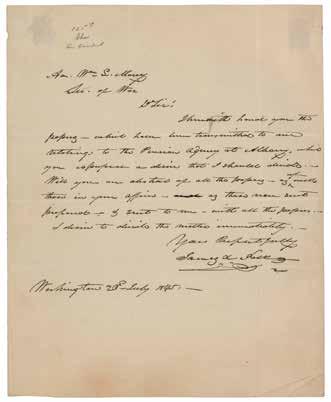 Hon. Wm L. Marcy
Sec. of War
Dr Sir:
I herewith hand you the
papers – which have been transmitted to me
relating to the Pension Agency at Albany, which
you expressed a desire that I should decide.
Will you an abstract of all the papers – with
those in your office – as these now sent
prepared – & sent to me – with all the papers. –
I desire to decide the matter immediately. –
Yours Respectfully
James K Polk
Washington 28 July 1845. –